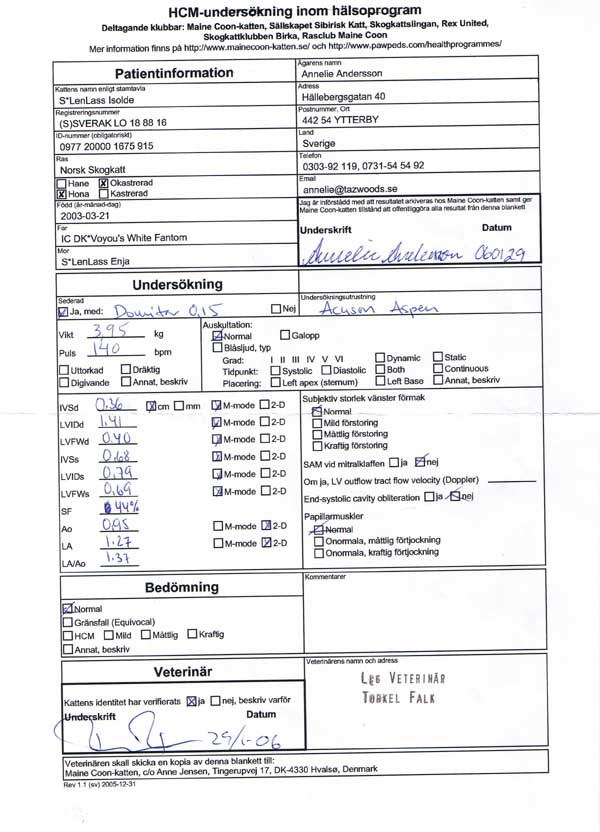 HCM-undersökning inom hälsoprogram
Deltagande klubbar: Maine Coon-katten, Sällskapet Sibirisk Katt, Skogkattslingan, Rex United,
Skogkattklubben Birka, Rasclub Maine Coon
Mer information finns på http://www.mainecoon-katten.se/ och http://www.pawpeds.com/healthprogrammes/
Patientinformation
Ägarens namn
Annelie Andersson
Kattens namn enligt stamtavla
S*LenLass Isolde
Adress
Hällebergsgatan 40
Registreringsnummer
(S)SVERAK LO 18 88 16
Postnummer, Ort
442 54 YTTERBY
ID-nummer (obligatoriskt)
0977 20000 1675 915
Land
Sverige
Ras
Norsk Skogkatt
Telefon
0303-92 119, 0731-54 54 92
Hane Okastrerad
Hona Kastrerad
Email
annelie@tazwoods.se
Född (år-månad-dag)
2003-03-21
Jag är införstådd med att resultatet arkiveras hos Maine Coon-katten samt ger
Maine Coon-katten tillstånd att offentliggöra alla resultat från denna blankett
Far
IC DK*Voyou's White Fantom
Underskrift Datum
Mor
S*LenLass Enja
Annelie Andersson 060129
Undersökning
Sederad
Ja, med: Domitor 0,15 Nej
Undersökningsutrustning
Acuson Aspen
Vikt 3,95 kg
Puls 140 bpm
Uttorkad Dräktig
Digivande Annat, beskriv
Auskultation:
Normal Galopp
Blåsljud, typ
Grad: I II III IV V VI Dynamic Static
Tidpunkt: Systolic Diastolic Both Continuous
Placering: Left apex (sternum) Left Base Annat, beskriv
IVSd 0.36 cm mm M-mode 2-D
LVIDd 1.41 M-mode 2-D
LVFWd 0.40 M-mode 2-D
IVSs 0.68 M-mode 2-D
LVIDs 0,79 M-mode 2-D
LVFWs 0,69 M-mode 2-D
SF 44%
Ao 0,95 M-mode 2-D
LA 1.27 M-mode 2-D
LA/Ao 1.37
Subjektiv storlek vänster förmak
Normal
Mild förstoring
Måttlig förstoring
Kraftig förstoring
SAM vid mitralklaffen ja nej
Om ja, LV outflow tract flow velocity (Doppler)
End-systolic cavity obliteration ja nej
Papillarmuskler
Normal
Onormala, måttlig förtjockning
Onormala, kraftig förtjockning
Bedömning
Kommentarer
Normal
Gränsfall (Equivocal)
HCM Mild Måttlig Kraftig
Annat, beskriv
Veterinär
Veterinärens namn och adress
Leg Veterinär
Torkel Falk
Kattens identitet har verifierats ja nej, beskriv varför
Underskrift Datum
29/1-06
Veterinären skall skicka en kopia av denna blankett till:
Maine Coon-katten, c/o Anne Jensen, Tingerupvej 17, DK-4330 Hvalsø, Denmark
Rev 1.1 (sv) 2005-12-31